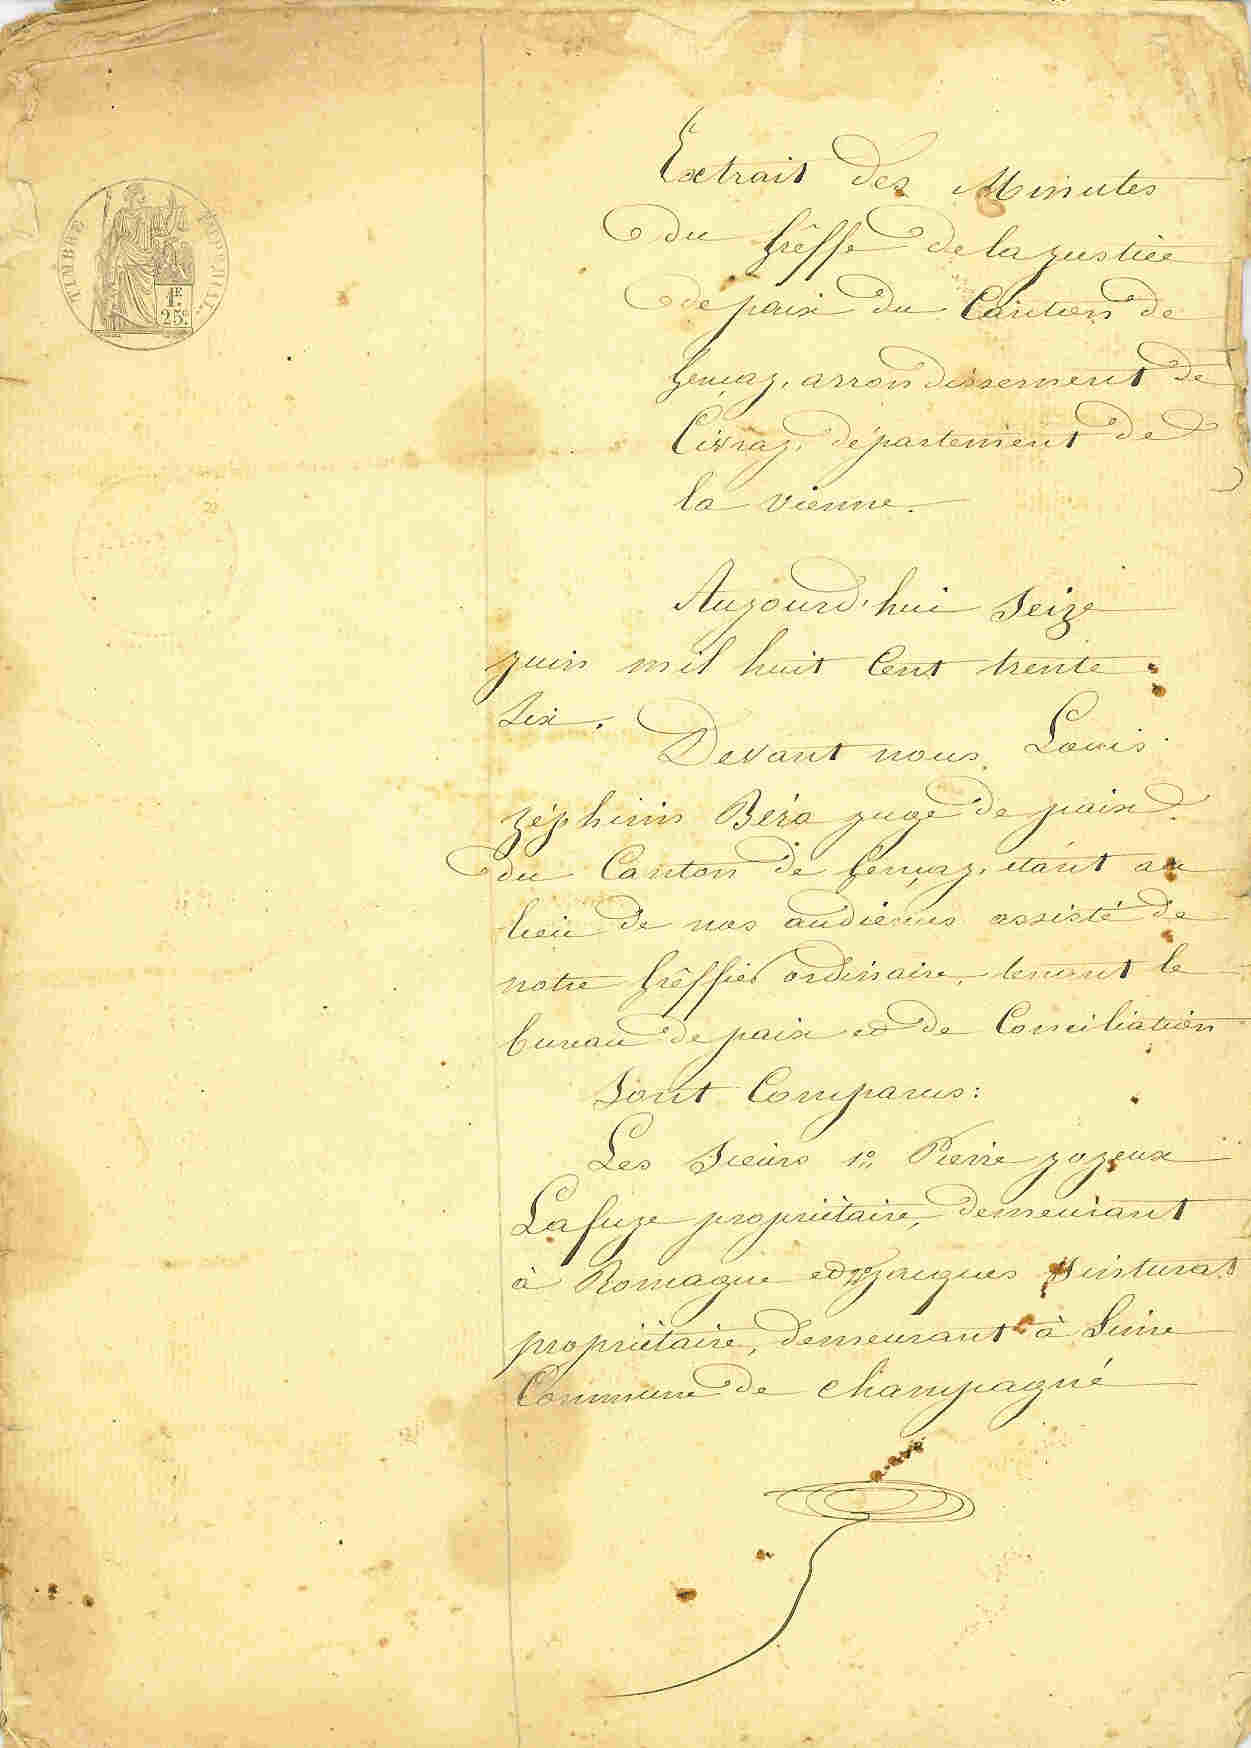 TIMBRE IMPÉRIAL
1F. 25c.
Extrait des Minutes
du Grêffe de la justice
de paix du Canton de
Gençay, arrondissement de
Civray, département de
la vienne.
Aujourd'hui Seize
juin mil huit Cent trente
Six.
Devant nous, Louis
zéphirin Béra juge de paix
du Canton de Gençay, étant au
lieu de nos audiences assisté de
notre Grêffier ordinaire, tenant le
bureau de paix et de Conciliation
Sont Comparus:
Les Sieurs 1º Pierre joyeux
Lafuge propriétaire, demeurant
à Romagne et 2º jacques
propriétaire, demeurant à
Commune de Champagné